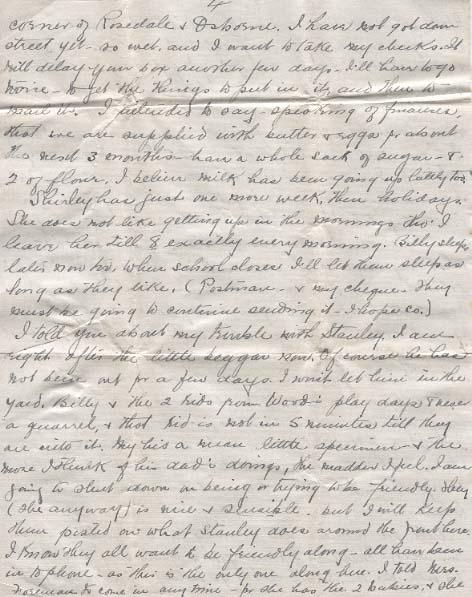 4
corner of Rosedale & Osborne. I have not got down
street yet - so wet. and I want to take my checks. It
will delay your box another few days. I'll have to go
twice - to get the things to put in it, and then to
mail it. I intended to say - speaking of finances,
that we are supplied with butter & eggs for about
the next 3 months - have a whole sack of sugar - &
2 of flour. I believe milk has been going up lately too.
Shirley has just one more week, then holidays.
She does not like getting up in the mornings tho' I
leave her till 8 exactly every morning. Billy sleeps
later now too. When school closes I'll let them sleep as
long as they like. (Postman - & my cheque. They
must be going to continue sending it - I hope so.)
I told you about my trouble with Stanley. I am
right after the little beggar now. Of course he has
not been out for a few days. I won't let him in the
yard. Billy & the 2 kids from Wood's play days & never
a quarrel, & that kid is not in 5 minutes till they
are into it. My his a mean little specimen - & the
more I think of his dad's doings, the madder I feel. I am
going to shut down on being or trying to be friendly. They
(she anyway) is nice & sensible. but I will keep
them posted on what Stanley does around the front here.
I know they all want to be friendly along - all have been
in to phone - as this is the only one along here. I told Mrs.
Foreman to come in any time - for she has the 2 babies, & she